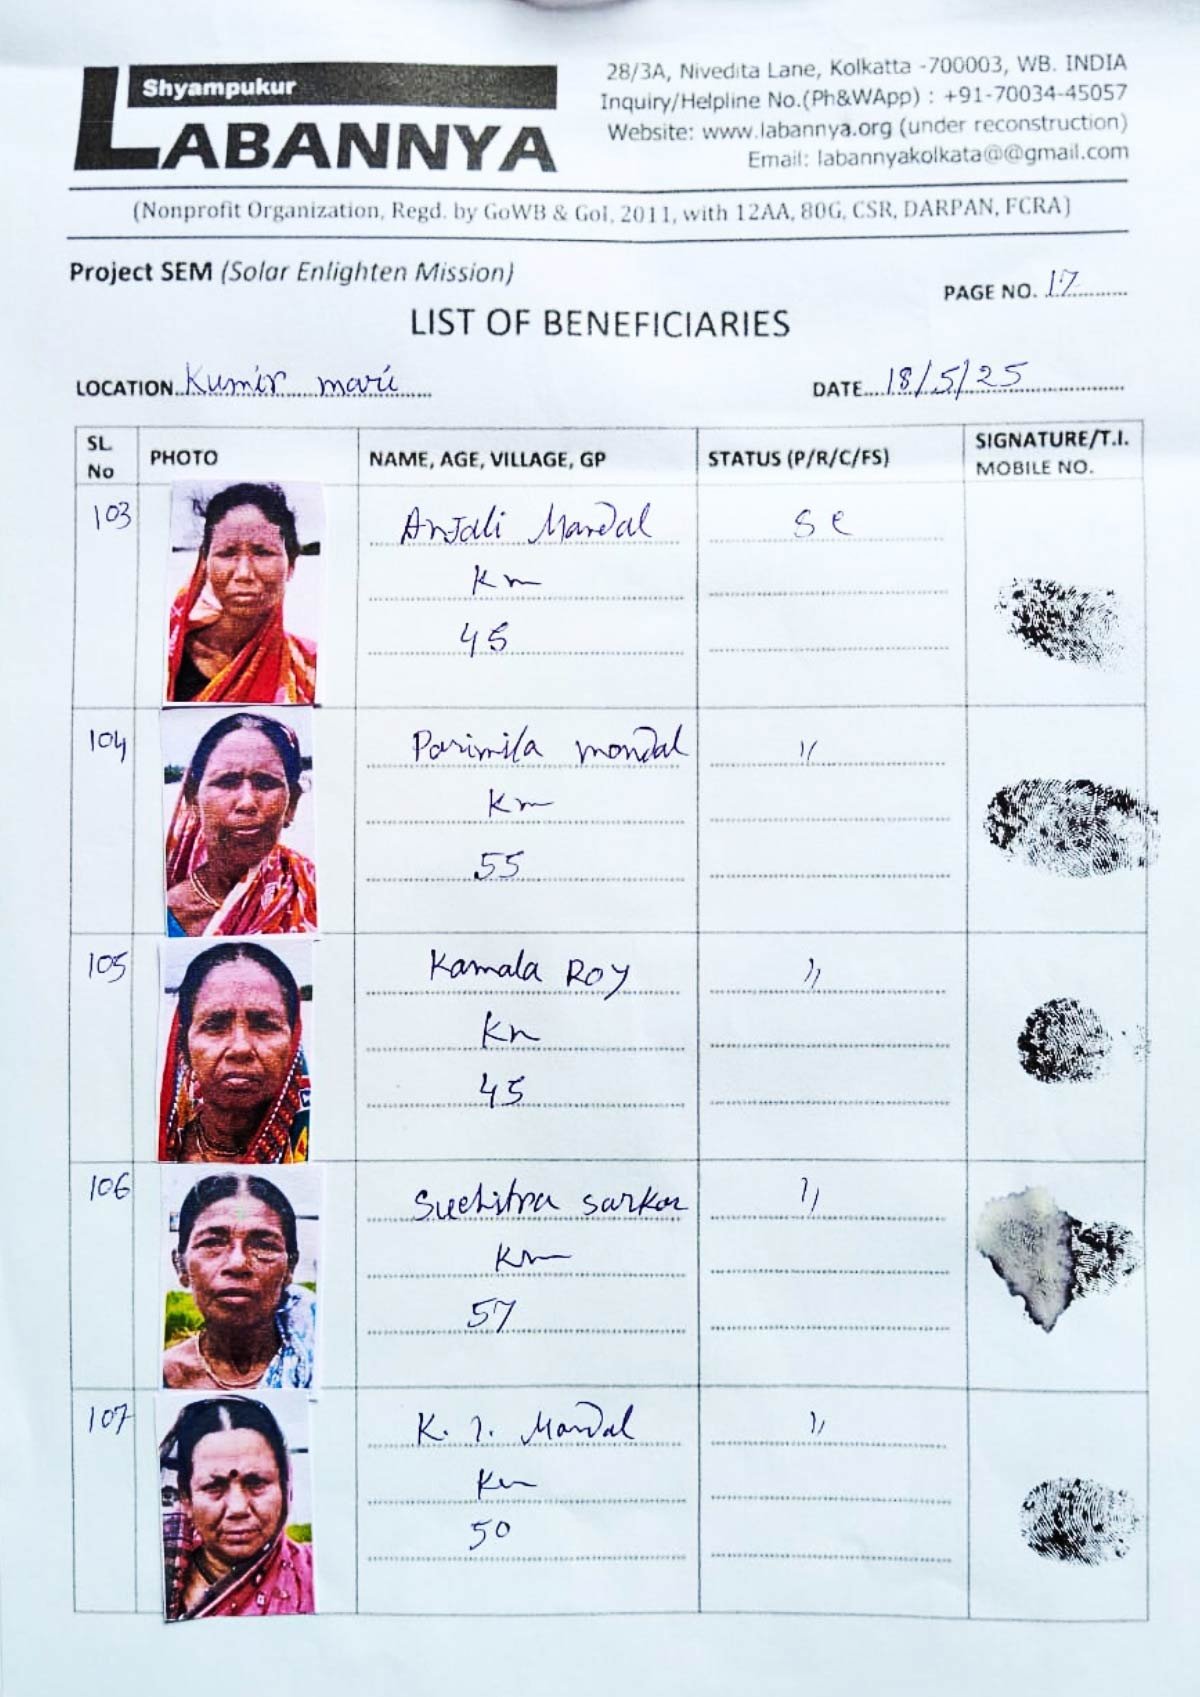 Shyampukur
LABANNYA
28/3A, Nivedita Lane, Kolkatta -700003, WB. INDIA
Inquiry/Helpline No.(Ph&WApp) : +91-70034-45057
Website: www.labannya.org (under reconstruction)
Email: labannyakolkata@@gmail.com
(Nonprofit Organization, Regd. by GoWB & GoI, 2011, with 12AA, 80G, CSR, DARPAN, FCRA)
Project SEM (Solar Enlighten Mission)
PAGE NO. 17
LIST OF BENEFICIARIES
LOCATION Kumir mari
DATE 18/5/25
SL No PHOTO NAME, AGE, VILLAGE, GP STATUS (P/R/C/FS) SIGNATURE/T.I. MOBILE NO.
103 Anjali Mandal SC
Km
45
104 Parimila mondal "
Km
55
105 Kamala Roy "
Km
45
106 Suchitra sarkar "
Km
57
107 K. Mandal "
Km
50